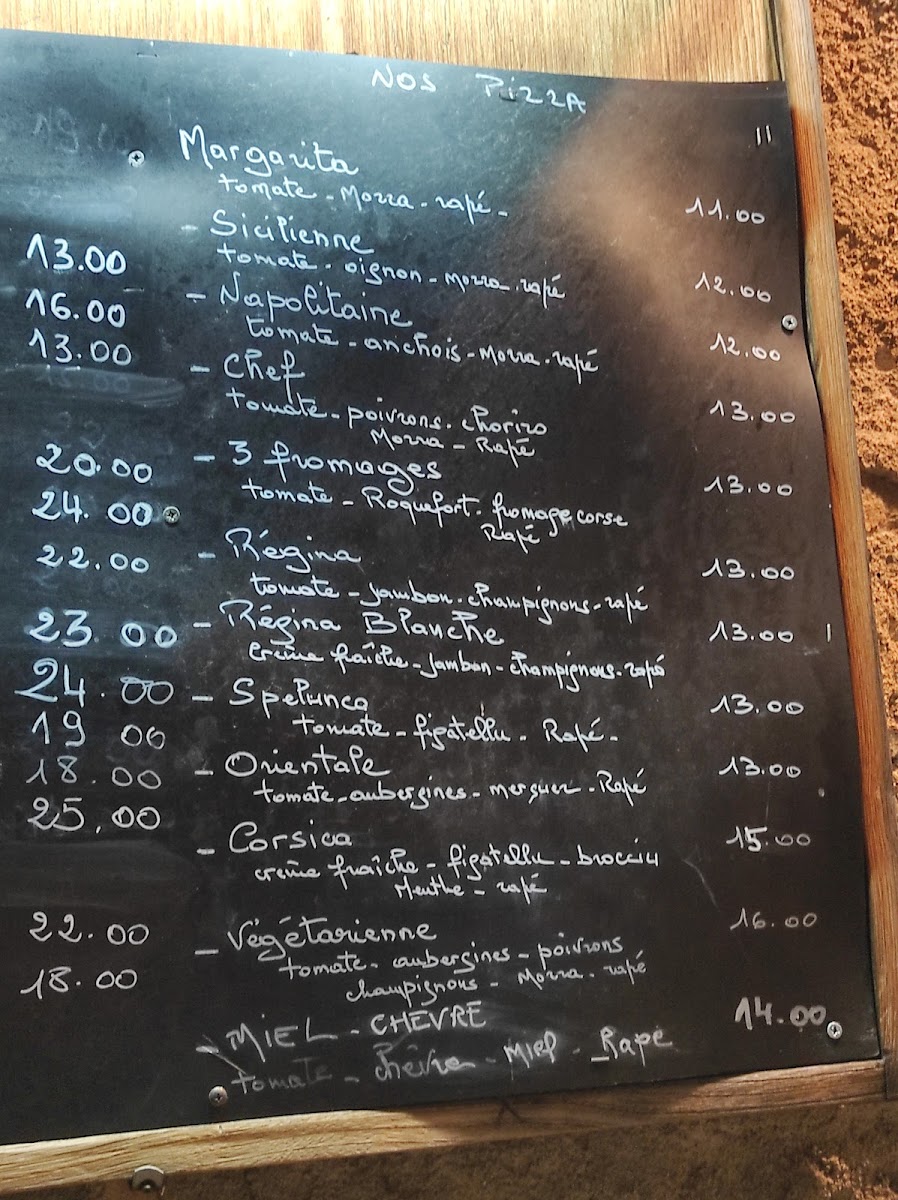 NOS PIZZA
Margarita
tomate - Mozza - rapé - 11.00
- Sicilienne
tomate - oignon - mozza - rapé 12.00
- Napolitaine
tomate - anchois - Mozza - rapé 12.00
- Chef 13.00
tomate - poivrons - chorizo
Mozza - Rapé
- 3 fromages 13.00
tomate - Roquefort - fromage corse
Rapé
- Régina 13.00
tomate - jambon - champignons - rapé
- Régina Blanche 13.00
crème fraîche - jambon - champignons - rapé
- Spelunca 13.00
tomate - figatellu - Rapé -
- Orientale 13.00
tomate - aubergines - merguez - Rapé
- Corsica 15.00
crème fraîche - figatellu - brocciu
Menthe - rapé
- Végétarienne 16.00
tomate - aubergines - poivrons
champignons - Mozza - rapé
- MIEL - CHEVRE 14.00
tomate - chèvre - Miel - Rapé
13.00
16.00
13.00
20.00
24.00
22.00
23.00
24.00
19 00
18.00
25,00
22.00
18.00